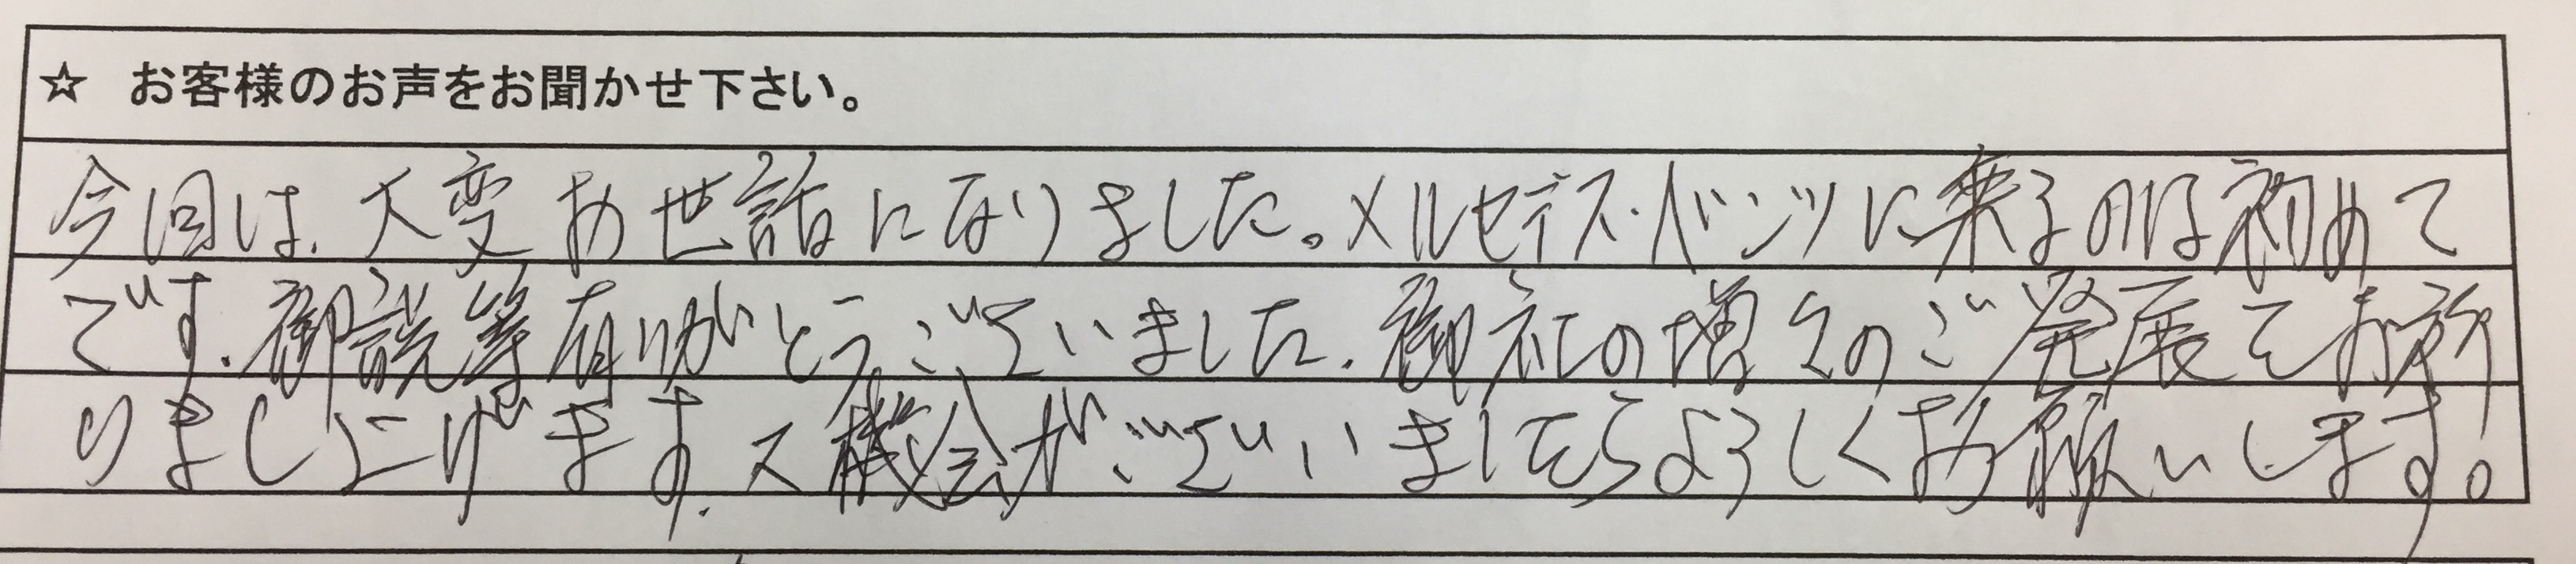 ☆ お客様のお声をお聞かせ下さい。
今回は、大変お世話になりました。メルセデス・ベンツに来るのは初めて
です。御説等有りがとうございました。御社の増々のご発展をお祈
りまし上げます。又機会がございましたらよろしくお願いします。